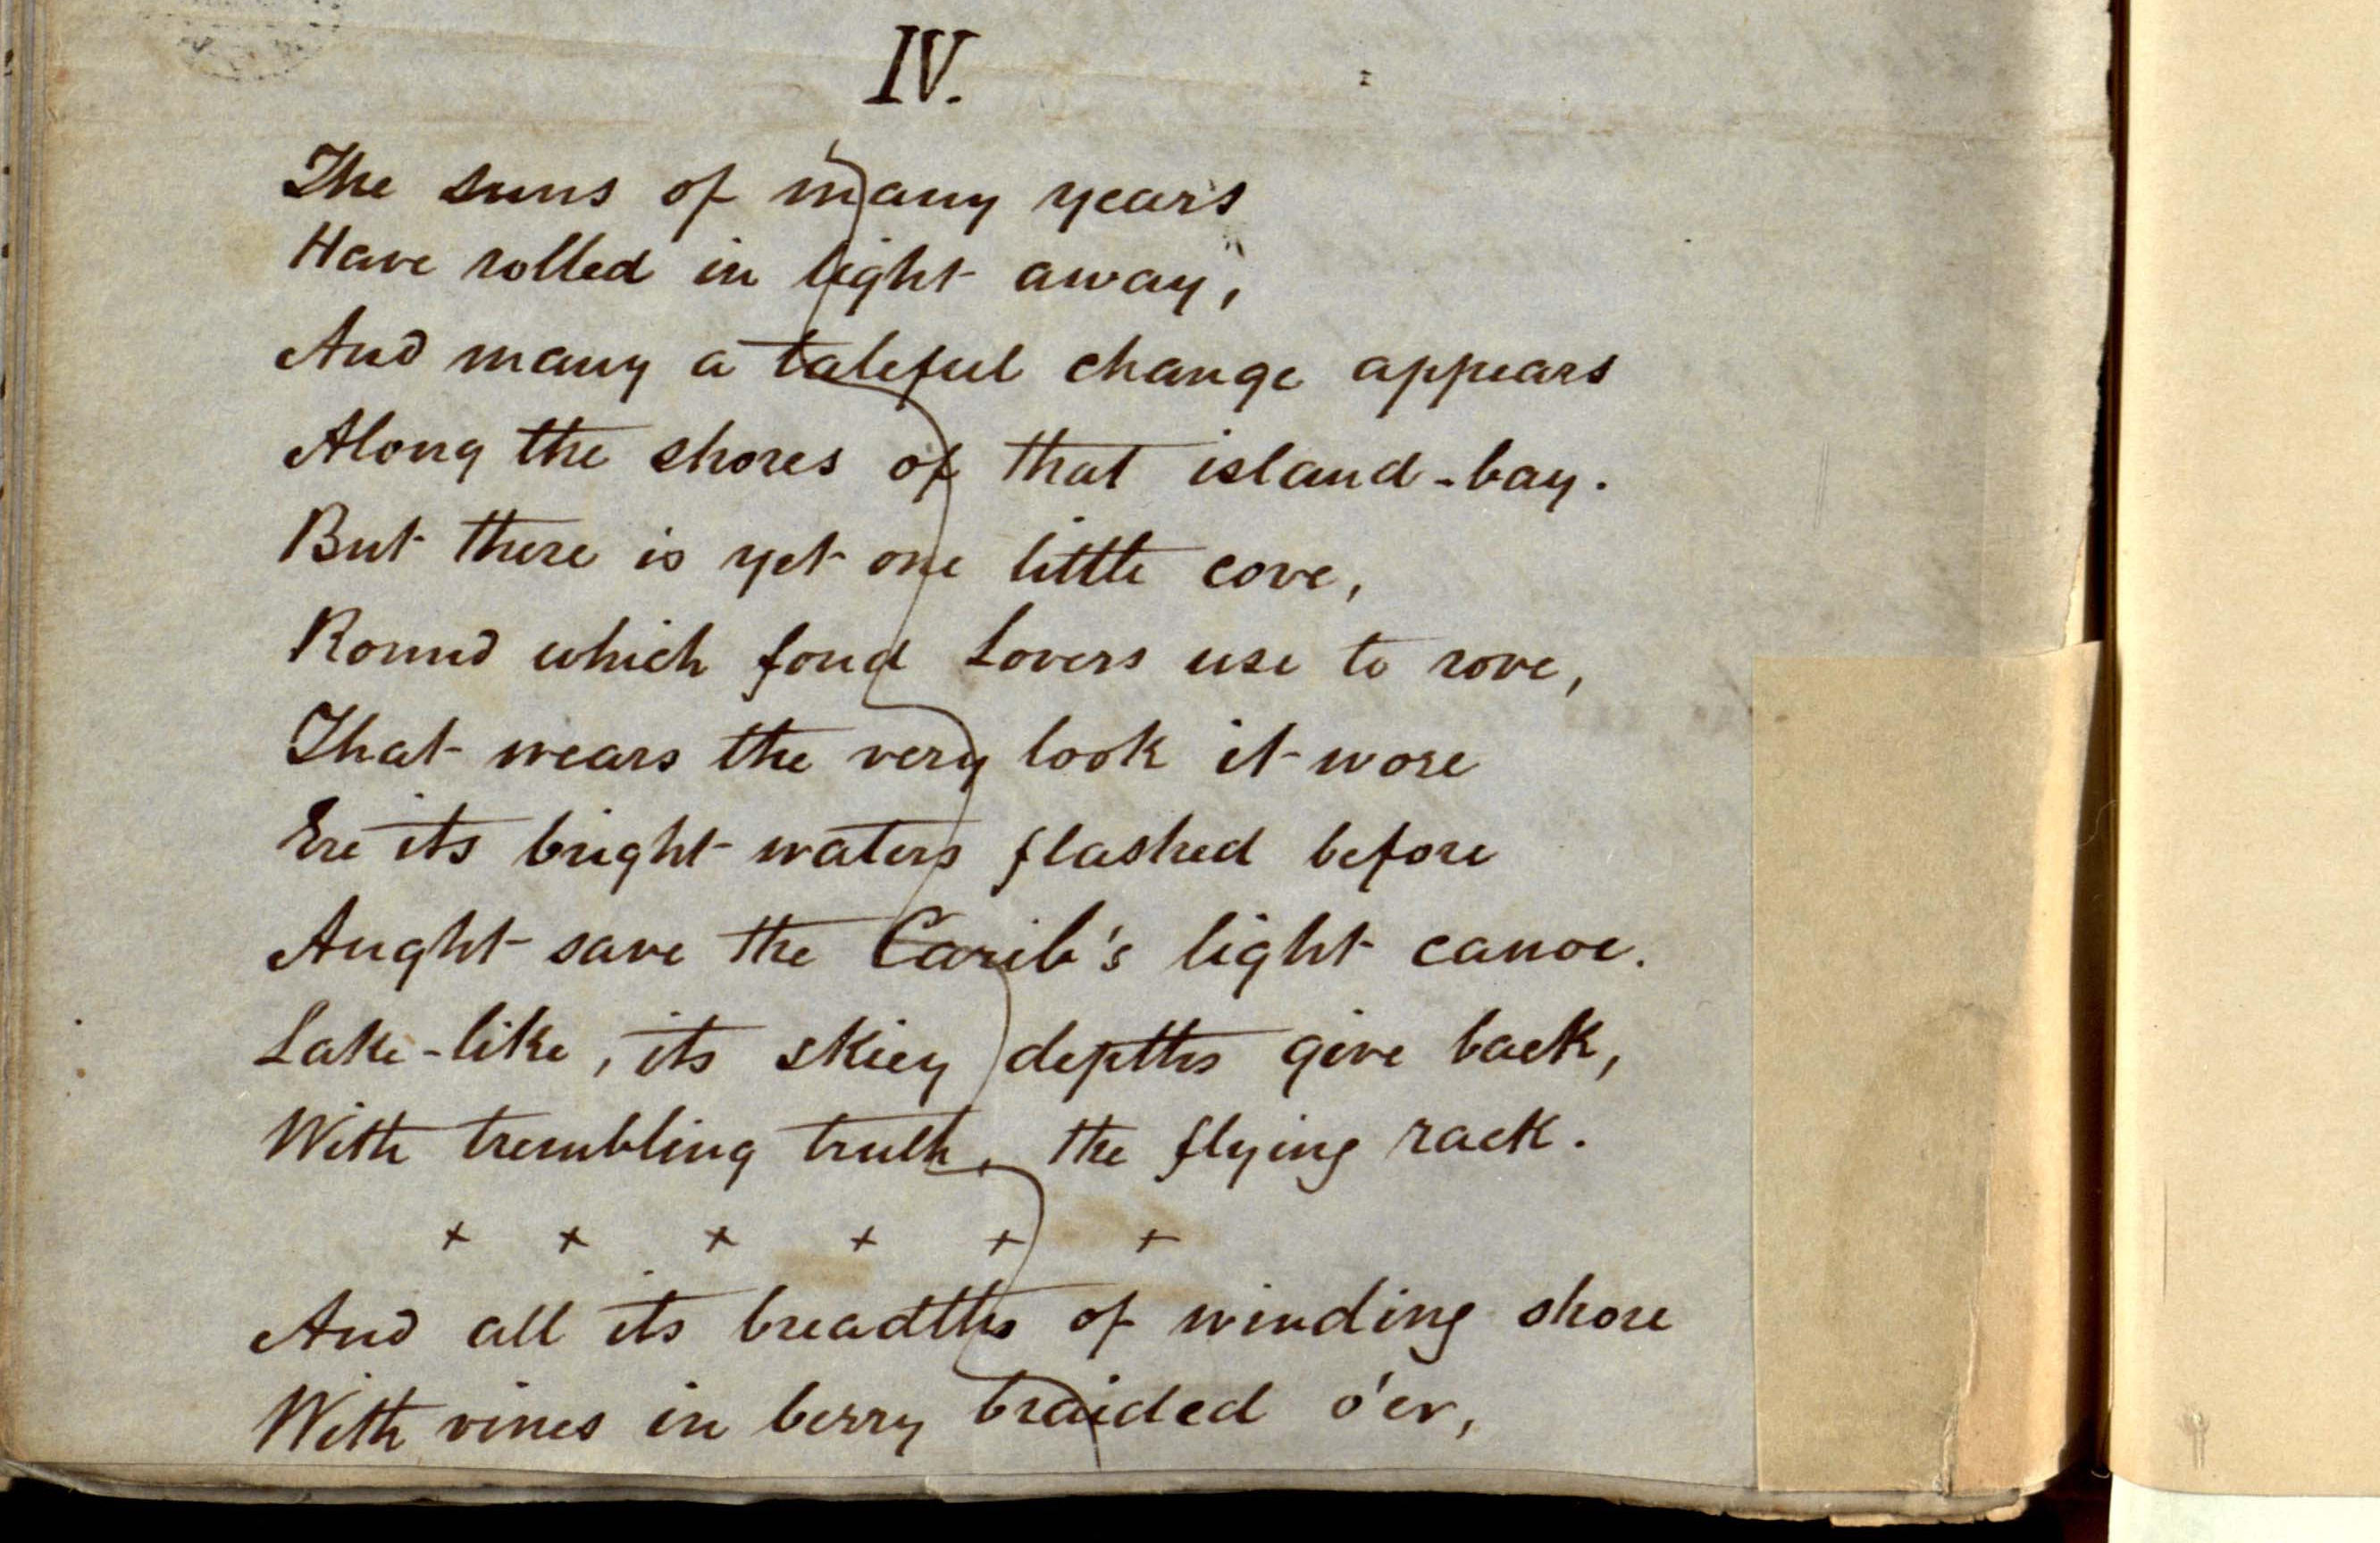 IV.
The suns of many years
Have rolled in light away,
And many a taleful change appears
Along the shores of that island-bay.
But there is yet one little cove,
Round which fond Lovers use to rove,
That wears the very look it wore
Ere its bright waters flashed before
Aught save the Carib's light canoe.
Lake-like, its skiey depths give back,
With trembling truth, the flying rack.
+ + + + + +
And all its breadths of winding shore
With vines in berry braided o'er,